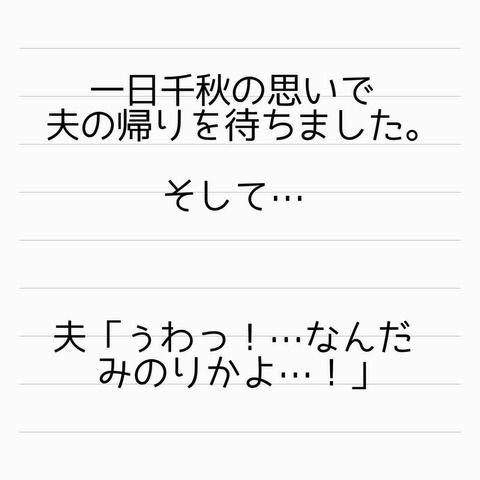 一日千秋の思いで
夫の帰りを待ちました。
そして…
夫「ぅわっ！…なんだ
みのりかよ…！」